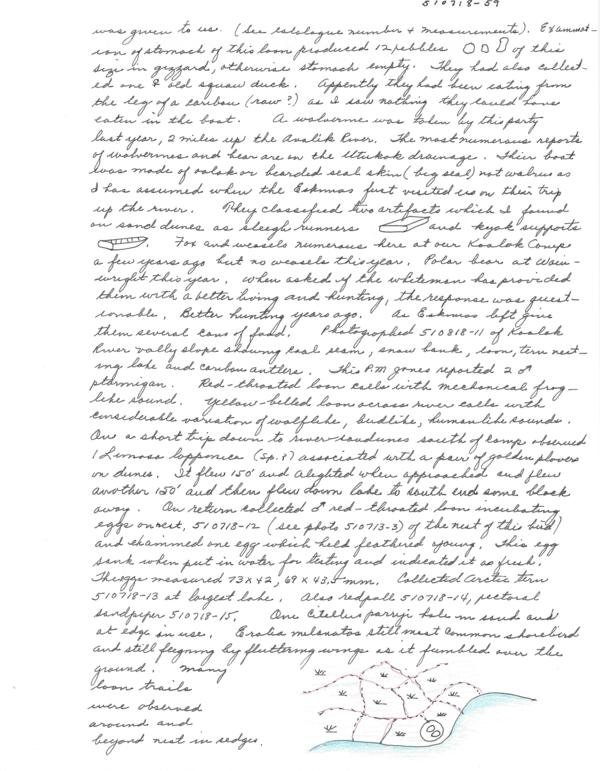 510718-59
was given to us. (See catalogue number + measurements). Examinat-
ion of stomach of this loon produced 12 pebbles of this
size in gizzard, otherwise stomach empty. They had also collect-
ed one ♀ old squaw duck. Appently they had been eating from
the leg of a caribou (raw?) as I saw nothing they could have
eaten in the boat. A wolverine was taken by this party
last year, 2 miles up the Avalik River. The most numerous reports
of wolverines and bear are on the Utukok drainage. Their boat
was made of oolak or bearded seal skin (big seal) not walrus as
I has assumed when the Eskimos first visited us on their trip
up the river. They classified two artifacts which I found
on sand dunes as sleigh runners and kyak supports
. Fox and weasels numerous here at our Kaolak Camp
a few years ago but no weasels this year. Polar bear at Wain-
wright this year. When asked if the whiteman has provided
them with a better living and hunting, the response was quest-
ionable. Better hunting years ago. As Eskimos left give
them several cans of food. Photographed 510818-11 of Kaolak
River vally slope showing coal seam, snow bank, loon, tern nest-
ing lake and caribou antlers. This P.M. Jones reported 2 ♂
ptarmigan. Red-throated loon calls with mechanical frog-
like sound. Yellow-billed loon across river calls with
considerable variation of wolflike, birdlike, humanlike sounds.
On a short trip down to river-sandunes south of camp observed
1 Limosa lapponica (sp.?) associated with a pair of golden plovers
on dunes. It flew 150' and alighted when approached and flew
another 150' and then flew down lake to south end some block
away. On return collected ♂ red-throated loon incubating
eggs on nest, 510718-12 (see photo 510713-3) of the nest of this bird)
and examined one egg which held feathered young. This egg
sank when put in water for testing and indicated it as fresh.
The eggs measured 73 x 42, 69 x 43.5 mm. Collected Arctic tern
510718-13 at largest lake. Also redpoll 510718-14, pectoral
sandpiper 510718-15. One Citellus parryii hole in sand and
at edge in use. Erolia melanotos still most common shorebird
and still feigning by fluttering wings as it fumbled over the
ground. Many
loon trails
were observed
around and
beyond nest in sedges.